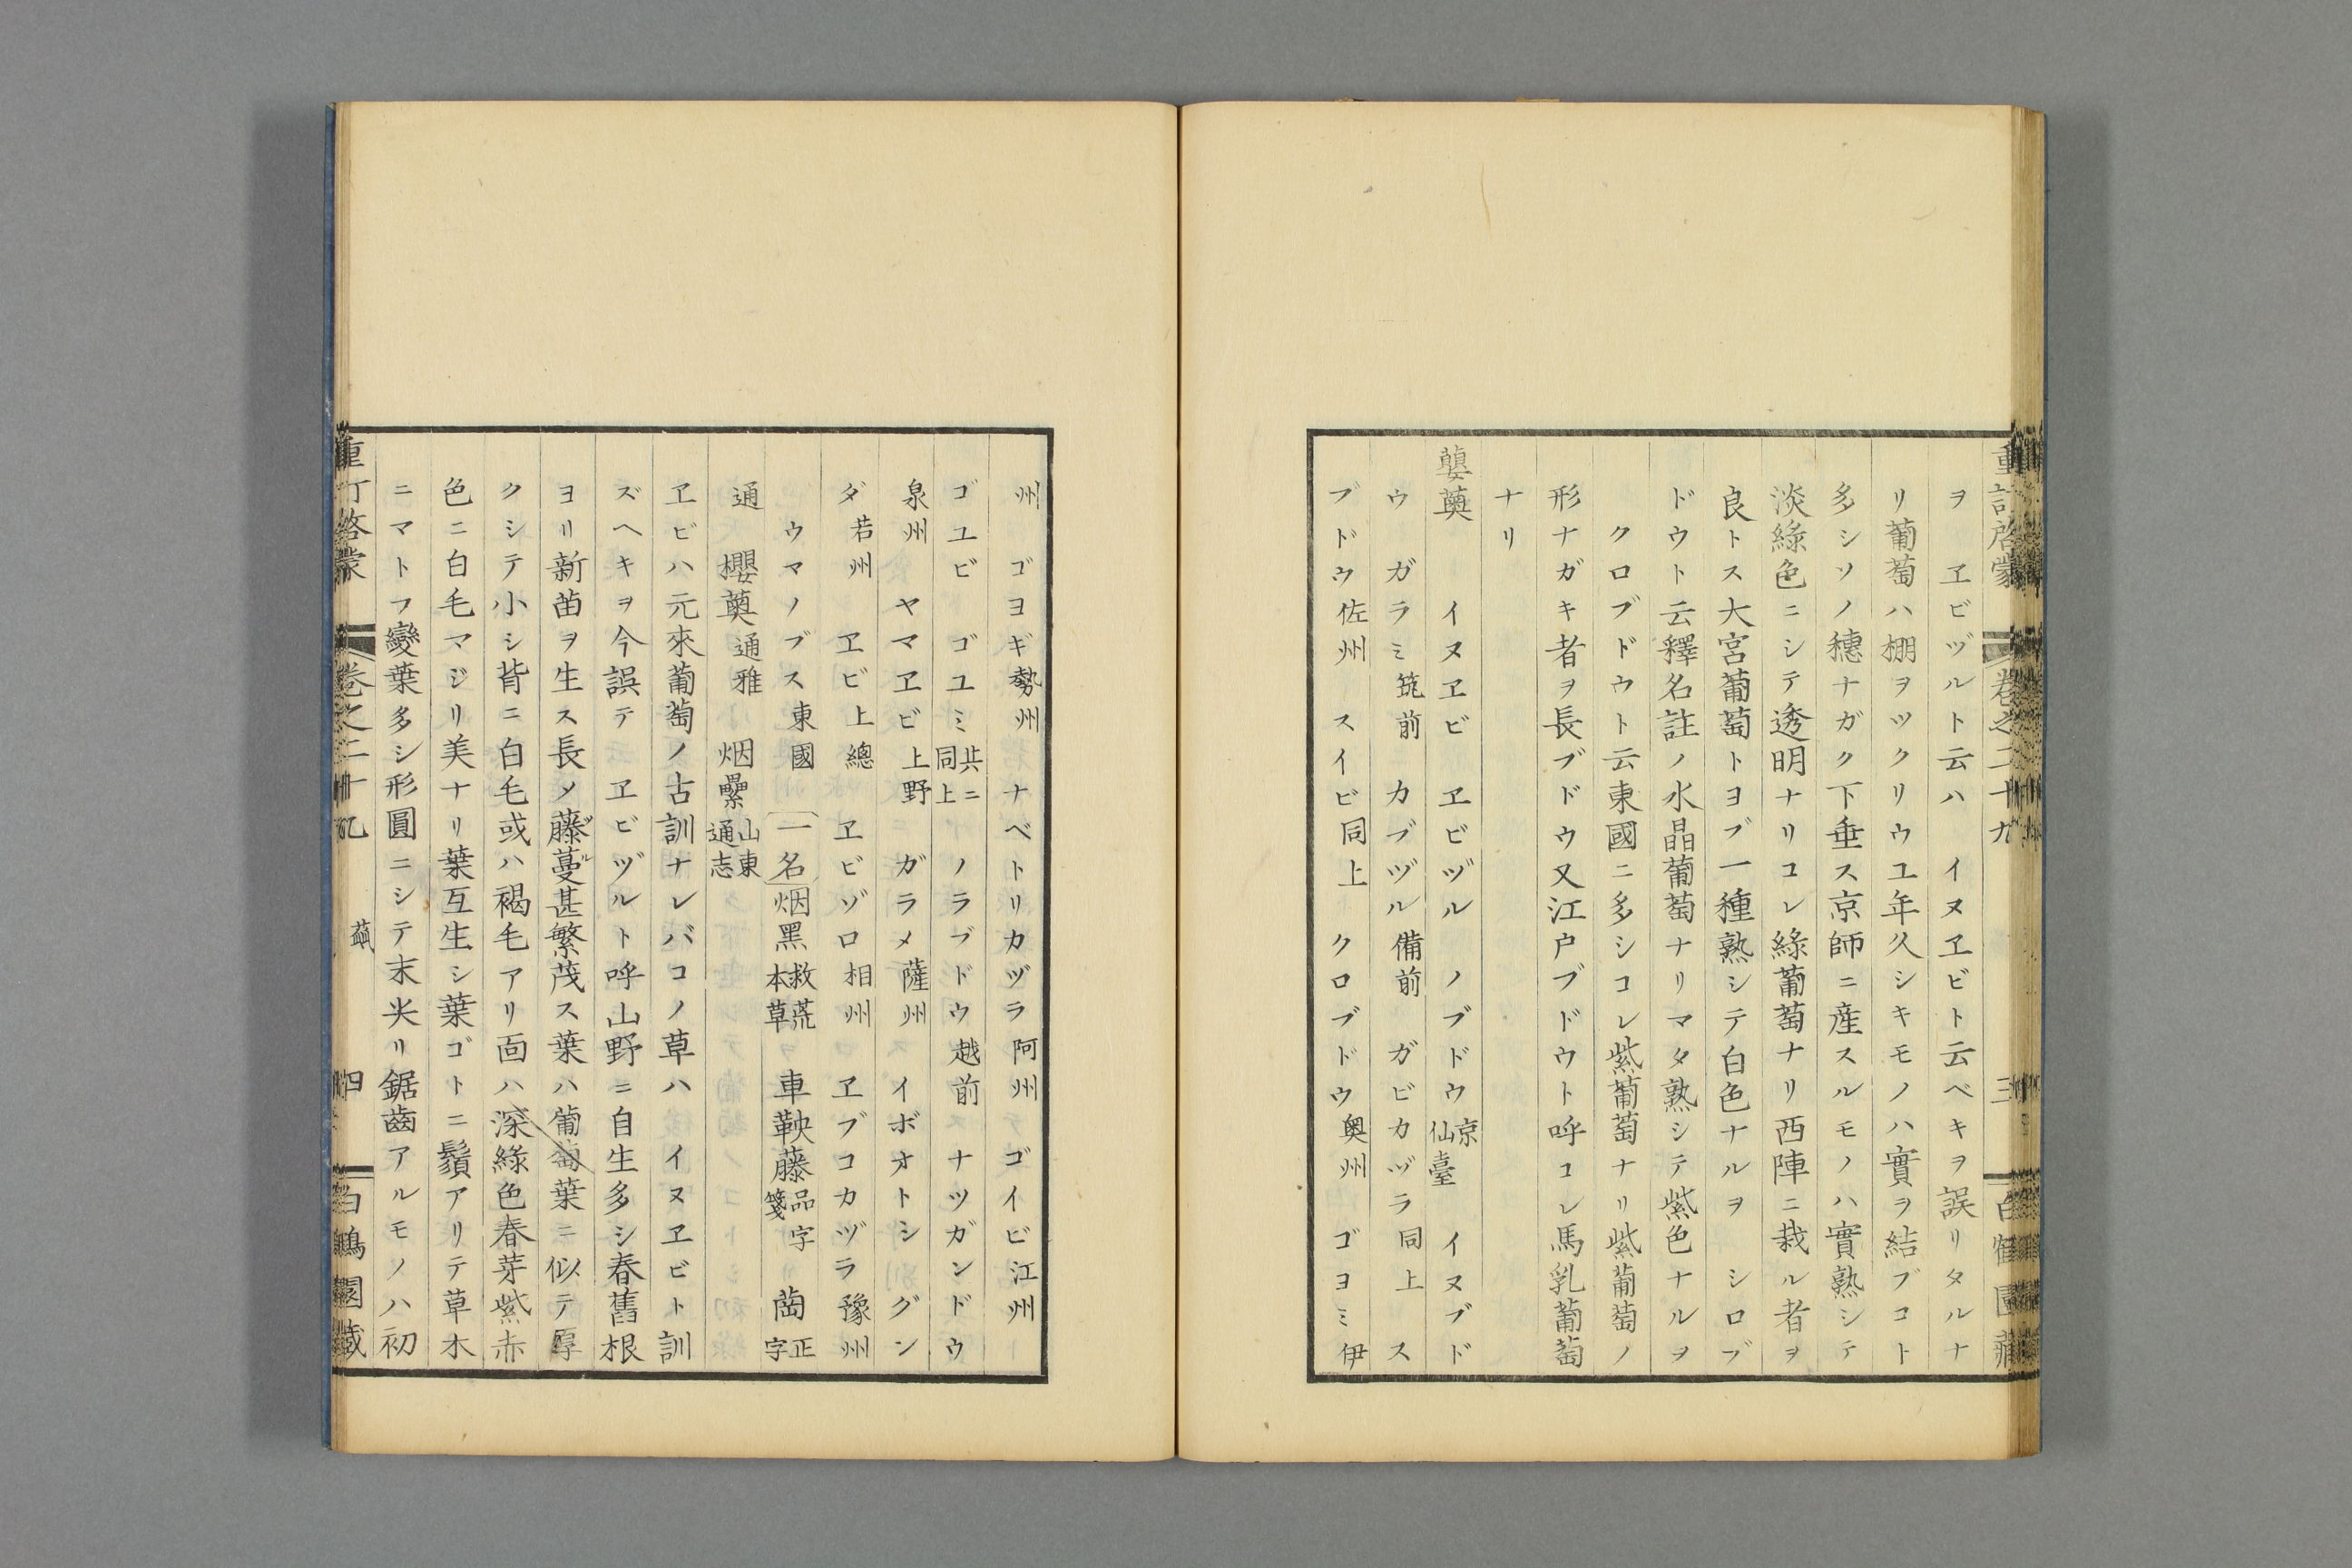 重訂啓蒙 卷之二十九 三 白鶴園藏
ヲ ヱビヅルト云ハ イヌヱビト云ベキヲ誤リタルナ
リ葡萄ハ棚ヲツクリウユ年久シキモノハ實ヲ結ブコト
多シソノ穗ナガク下垂ス京師ニ産スルモノハ實熟シテ
淡綠色ニシテ透明ナリコレ綠葡萄ナリ西陣ニ栽ル者ヲ
良トス大宮葡萄トヨブ一種熟シテ白色ナルヲ シロブ
ドウト云釋名註ノ水晶葡萄ナリマタ熟シテ紫色ナルヲ
クロブドウト云東國ニ多シコレ紫葡萄ナリ紫葡萄ノ
形ナガキ者ヲ長ブドウ又江戸ブドウト呼コレ馬乳葡萄
ナリ
蘡薁 イヌヱビ ヱビヅル ノブドウ京仙臺 イヌブド
ウ ガラミ筑前 カブヅル備前 ガビカヅラ同上 ス
ブドウ佐州 スイビ同上 クロブドウ奥州 ゴヨミ伊
州 ゴヨギ勢州 ナベトリカヅラ阿州 ゴイビ江州
ゴユビ ゴユミ共ニ同上 ノラブドウ越前 ナツガンドウ
泉州 ヤマヱビ上野 ガラメ薩州 イボオトシ グン
ダ若州 ヱビ上總 ヱビゾロ相州 ヱブコカヅラ豫州
ウマノブス東國 一名烟黑救荒本草 車鞅藤品字箋 蔨正字
通 櫻薁通雅 烟纍山東通志
ヱビハ元來葡萄ノ古訓ナレバコノ草ハ イヌヱビト訓
ズヘキヲ今誤テ ヱビヅルト呼山野ニ自生多シ春舊根
ヨリ新苗ヲ生ス長メ藤蔓甚繁茂ス葉ハ葡萄葉ニ似テ厚
クシテ小シ背ニ白毛或ハ褐毛アリ面ハ深綠色春芽紫赤
色ニ白毛マジリ美ナリ葉互生シ葉ゴトニ鬚アリテ草木
ニマトフ變葉多シ形圓ニシテ末尖リ鋸齒アルモノハ初
重訂啓蒙 卷之二十九 蓏 四 白鶴園藏